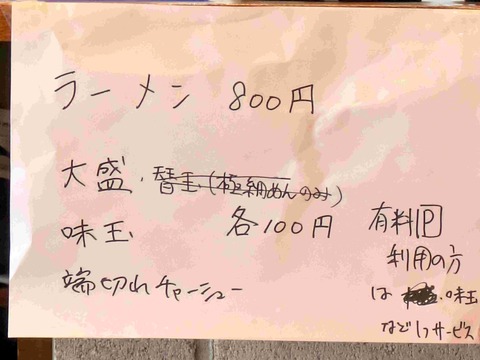 ラーメン 800円
大盛・替玉(極細めんのみ)
味玉 各100円
端切れチャーシュー
有料P
利用の方
は 味玉
など1つサービス